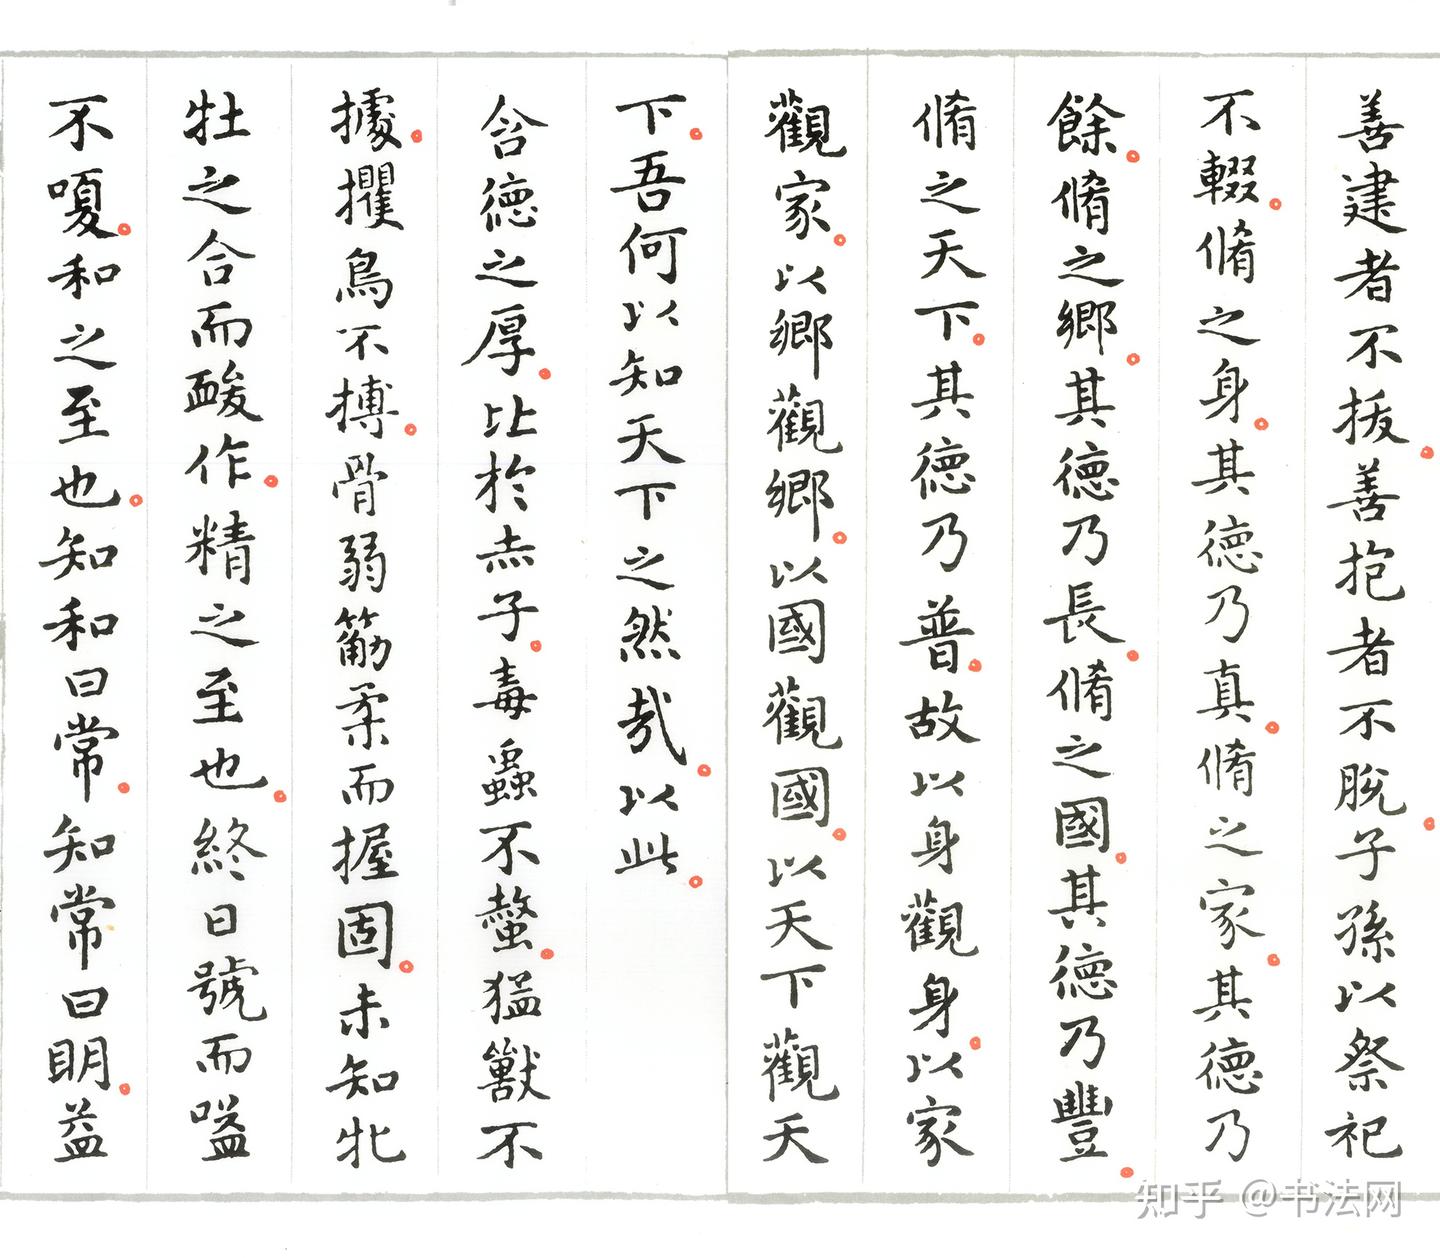 善建者不拔。善抱者不脫。子孫以祭祀
不輟。脩之身。其德乃真。脩之家。其德乃
餘。脩之鄉。其德乃長。脩之國。其德乃豐。
脩之天下。其德乃普。故以身觀身。以家
觀家。以鄉觀鄉。以國觀國。以天下觀天
下。吾何以知天下之然哉。以此。
含德之厚。比於赤子。毒蟲不螫。猛獸不
據。攫鳥不搏。骨弱筋柔而握固。未知牝
牡之合而酸作。精之至也。終日號而嗌
不嗄。和之至也。知和曰常。知常曰明。益
知乎 @书法网